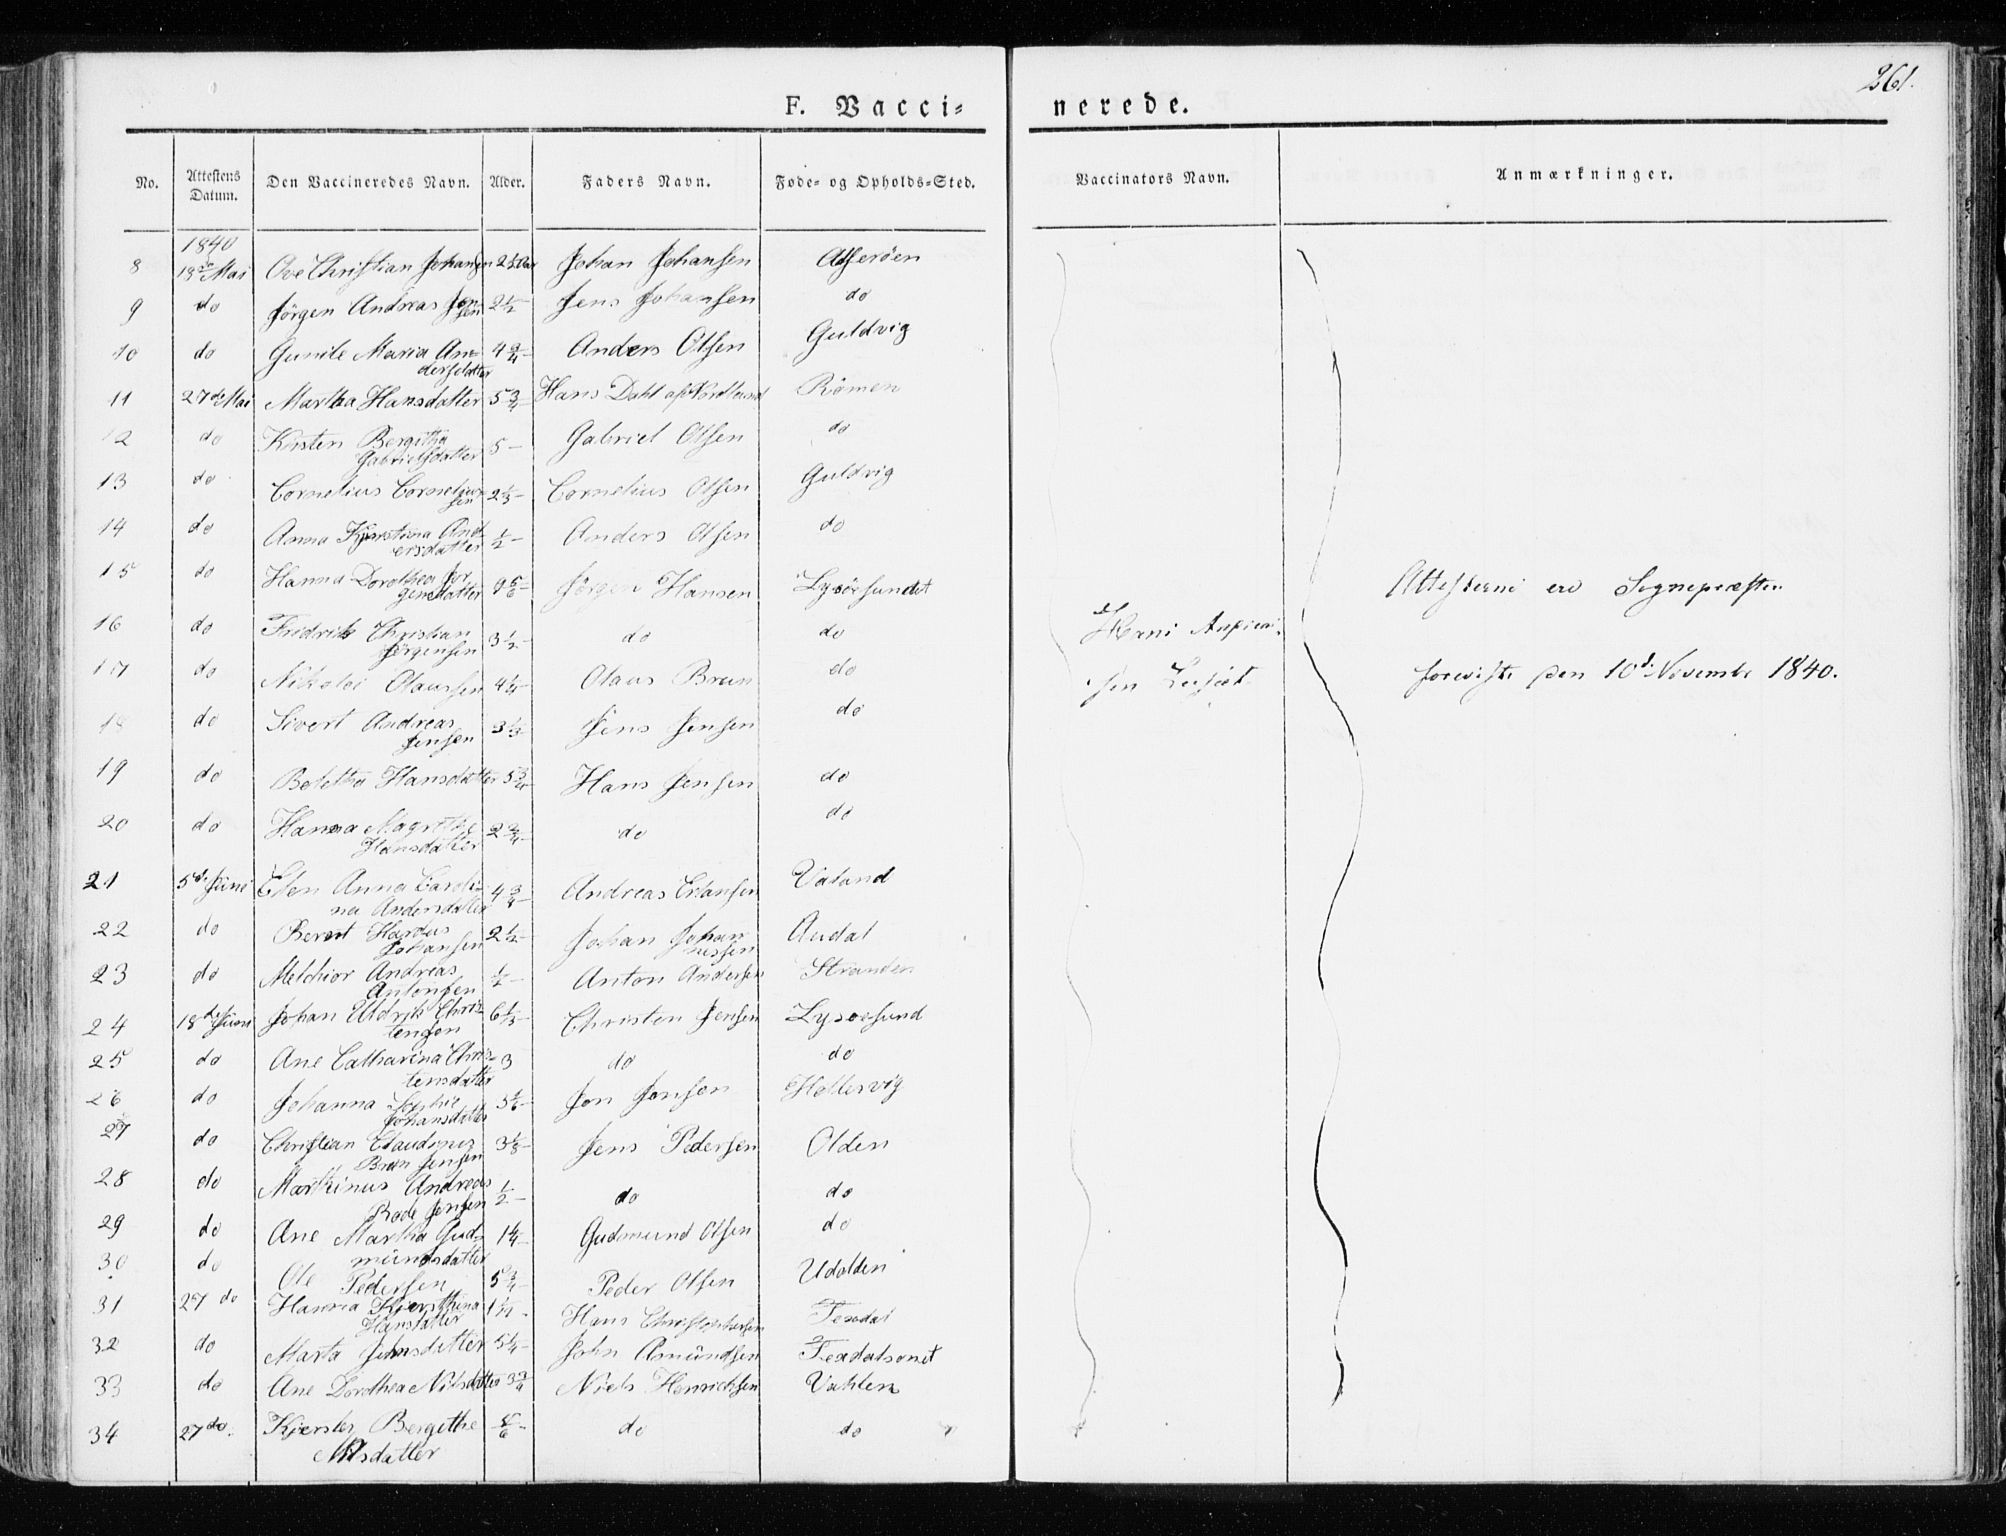 261.
F. Vacci= nerede.
No. Attestens Datum. Den Vaccineredes Navn. Alder. Faders Navn. Føde- og Opholds-Sted. Vaccinators Navn. Anmærkninger.
1840
8 18de Mai Ove Christian Johansen 2½ Aar Johan Johansen Asserøen
9 do Jörgen Andreas Jensen 2½ – Jens Johansen do
10 do Gunile Maria Andersdatter 4¾ – Anders Olsen Guldvig
11 27de Mai Martha Hansdatter 5¾ – Hans Dahl af Römen
12 do Kirsten Bergitha Gabrielsdatter 5 – Gabriel Olsen do
13 do Cornelius Corneliussen 2⅓ – Cornelius Olsen Guldvig
14 do Anna Kjerstina Andersdatter ½ – Anders Olsen do
15 do Hanna Dorothea Jörgensdatter 9⅚ – Jörgen Hansen Lysöesundet
16 do Fridrik Christian Jörgensen 3½ – do do
17 do Nikolai Olaussen 4¼ – Olaus Brun do
18 do Sivert Andreas Jensen 3⅓ – Jens Jensen do
19 do Beletha Hansdatter 5¾ – Hans Jensen do
20 do Hanna Magrethe Hansdatter 2¾ – do do
21 5de Juni Elen Anna Carolina Andersdatter 4¾ – Andreas Erlansen Valand
22 do Berent Hardus Johansen 2½ – Johan Johannessen Audal
23 do Melchior Andreas Antonsen ½ – Anton Andersen Stranden
24 18de Juni Johan Uldrik Christensen 6⅓ – Christen Jensen Lysöesund
25 do Ane Catharina Christensdatter 3 do do
26 do Johanna Sophie Johansdatter 5⅙ – Jon Jonsen Hellesvig
27 do Christian Claudius Brun Jensen 3⅛ – Jens Pedersen Olden
28 do Marthinus Andreas Rode Jensen ½ – do do
29 do Ane Martha Gudmundsdatter 1¼ – Gudmund Olsen do
30 do Ole Pedersen 5¾ – Peder Olsen Udolden
31 27 do Hanna Kjersthina Hansdatter Hans Christophersen Texdal
32 do Marta Johnsdatter 5¼ – John Amundsen Texdalsonet
33 do Ane Dorothea Nilsdatter 3¾ Niels Henrichsen Vahlen
34 27 do. Kjersten Bergethe Nilsdatter ⅚ – do do
Hans
sen
Attesterne ere Sognepræsten
foreviste den 10d. Novembr 1840.